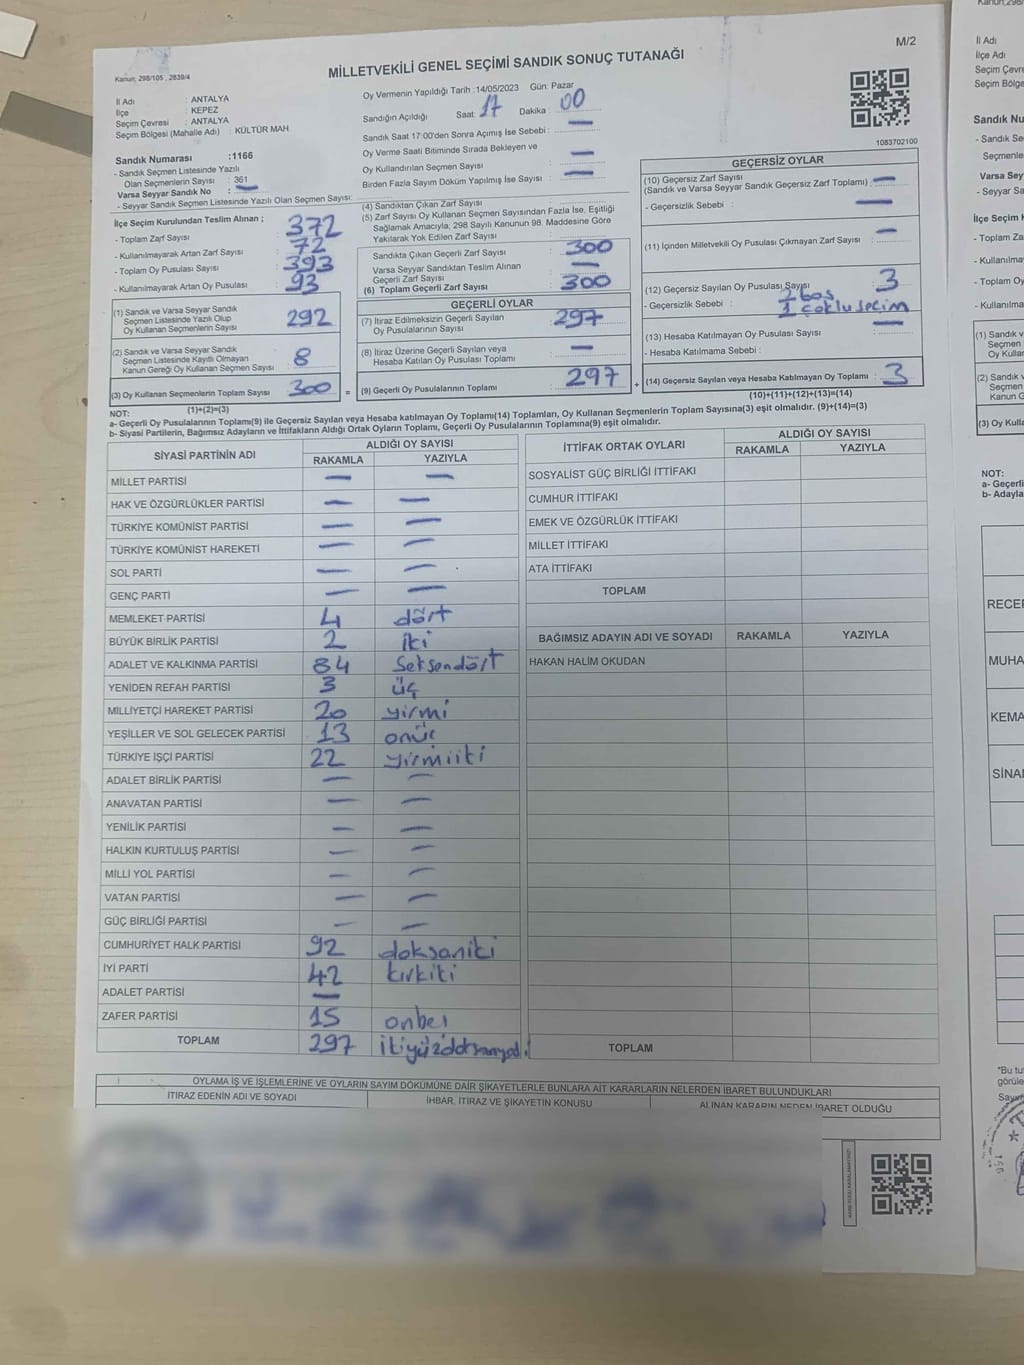 M/2
Kanun; 298/105 , 2839/4
MİLLETVEKİLİ GENEL SEÇİMİ SANDIK SONUÇ TUTANAĞI
İl Adı : ANTALYA
İlçe : KEPEZ
Seçim Çevresi : ANTALYA
Seçim Bölgesi (Mahalle Adı) : KÜLTÜR MAH
Sandık Numarası :1166
- Sandık Seçmen Listesinde Yazılı
Olan Seçmenlerin Sayısı : 361
Varsa Seyyar Sandık No : —
- Seyyar Sandık Seçmen Listesinde Yazılı Olan Seçmen Sayısı:
Oy Vermenin Yapıldığı Tarih :14/05/2023 Gün: Pazar
Sandığın Açıldığı Saat: 17 Dakika : 00
Sandık Saat 17:00'den Sonra Açımış İse Sebebi : —
Oy Verme Saati Bitiminde Sırada Bekleyen ve
Oy Kullandırılan Seçmen Sayısı : —
Birden Fazla Sayım Döküm Yapılmış İse Sayısı : —
1083702100
İlçe Seçim Kurulundan Teslim Alınan ;
- Toplam Zarf Sayısı : 372
- Kullanılmayarak Artan Zarf Sayısı : 72
- Toplam Oy Pusulası Sayısı : 393
- Kullanılmayarak Artan Oy Pusulası : 93
(1) Sandık ve Varsa Seyyar Sandık
Seçmen Listesinde Yazılı Olup
Oy Kullanan Seçmenlerin Sayısı : 292
(2) Sandık ve Varsa Seyyar Sandık
Seçmen Listesinde Kayıtlı Olmayan
Kanun Gereği Oy Kullanan Seçmen Sayısı : 8
(3) Oy Kullanan Seçmenlerin Toplam Sayısı : 300
(1)+(2)=(3)
(4) Sandıktan Çıkan Zarf Sayısı :
(5) Zarf Sayısı Oy Kullanan Seçmen Sayısından Fazla İse, Eşitliği
Sağlamak Amacıyla; 298 Sayılı Kanunun 98. Maddesine Göre
Yakılarak Yok Edilen Zarf Sayısı :
Sandıkta Çıkan Geçerli Zarf Sayısı : 300
Varsa Seyyar Sandıktan Teslim Alınan
Geçerli Zarf Sayısı : —
(6) Toplam Geçerli Zarf Sayısı : 300
GEÇERLİ OYLAR
(7) İtiraz Edilmeksizin Geçerli Sayılan
Oy Pusulalarının Sayısı : 297
(8) İtiraz Üzerine Geçerli Sayılan veya
Hesaba Katılan Oy Pusulası Toplamı : —
= (9) Geçerli Oy Pusulalarının Toplamı : 297
GEÇERSİZ OYLAR
(10) Geçersiz Zarf Sayısı : —
(Sandık ve Varsa Seyyar Sandık Geçersiz Zarf Toplamı)
- Geçersizlik Sebebi : —
(11) İçinden Milletvekili Oy Pusulası Çıkmayan Zarf Sayısı : —
(12) Geçersiz Sayılan Oy Pusulası Sayısı : 3
- Geçersizlik Sebebi : 2 boş
1 çoklu seçim
(13) Hesaba Katılmayan Oy Pusulası Sayısı : —
- Hesaba Katılmama Sebebi :
+ (14) Geçersiz Sayılan veya Hesaba Katılmayan Oy Toplamı : 3
(10)+(11)+(12)+(13)=(14)
NOT:
a- Geçerli Oy Pusulalarının Toplamı(9) ile Geçersiz Sayılan veya Hesaba katılmayan Oy Toplamı(14) Toplamları, Oy Kullanan Seçmenlerin Toplam Sayısına(3) eşit olmalıdır. (9)+(14)=(3)
b- Siyasi Partilerin, Bağımsız Adayların ve İttifakların Aldığı Ortak Oyların Toplamı, Geçerli Oy Pusulalarının Toplamına(9) eşit olmalıdır.
SİYASİ PARTİNİN ADI ALDIĞI OY SAYISI
RAKAMLA YAZIYLA
MİLLET PARTİSİ — —
HAK VE ÖZGÜRLÜKLER PARTİSİ — —
TÜRKİYE KOMÜNİST PARTİSİ — —
TÜRKİYE KOMÜNİST HAREKETİ — —
SOL PARTİ — —
GENÇ PARTİ — —
MEMLEKET PARTİSİ 4 dört
BÜYÜK BİRLİK PARTİSİ 2 iki
ADALET VE KALKINMA PARTİSİ 84 Seksendört
YENİDEN REFAH PARTİSİ 3 üç
MİLLİYETÇİ HAREKET PARTİSİ 20 yirmi
YEŞİLLER VE SOL GELECEK PARTİSİ 13 onüç
TÜRKİYE İŞÇİ PARTİSİ 22 yirmiiki
ADALET BİRLİK PARTİSİ — —
ANAVATAN PARTİSİ — —
YENİLİK PARTİSİ — —
HALKIN KURTULUŞ PARTİSİ — —
MİLLİ YOL PARTİSİ — —
VATAN PARTİSİ — —
GÜÇ BİRLİĞİ PARTİSİ — —
CUMHURİYET HALK PARTİSİ 92 doksaniki
İYİ PARTİ 42 kırkiki
ADALET PARTİSİ —
ZAFER PARTİSİ 15 onbeş
TOPLAM 297 ikiyüzdoksanyedi
İTTİFAK ORTAK OYLARI ALDIĞI OY SAYISI
RAKAMLA YAZIYLA
SOSYALİST GÜÇ BİRLİĞİ İTTİFAKI
CUMHUR İTTİFAKI
EMEK VE ÖZGÜRLÜK İTTİFAKI
MİLLET İTTİFAKI
ATA İTTİFAKI
TOPLAM
BAĞIMSIZ ADAYIN ADI VE SOYADI RAKAMLA YAZIYLA
HAKAN HALİM OKUDAN
TOPLAM
OYLAMA İŞ VE İŞLEMLERİNE VE OYLARIN SAYIM DÖKÜMÜNE DAİR ŞİKAYETLERLE BUNLARA AİT KARARLARIN NELERDEN İBARET BULUNDUKLARI
İTİRAZ EDENİN ADI VE SOYADI İHBAR, İTİRAZ VE ŞİKAYETİN KONUSU ALINAN KARARIN NEDEN İBARET OLDUĞU
Kanun;298/
İl Adı
İlçe Adı
Seçim Çevre
Seçim Bölge
Sandık Nu
- Sandık Se
Seçmenle
Varsa Sey
- Seyyar Sa
İlçe Seçim K
- Toplam Za
- Kullanılma
- Toplam Oy
- Kullanılma
(1) Sandık v
Seçmen
Oy Kullan
(2) Sandık v
Seçmen
Kanun G
(3) Oy Kulla
NOT:
a- Geçerli
b- Adayla
RECEP
MUHA
KEMA
SİNAN
*Bu tu
görüle